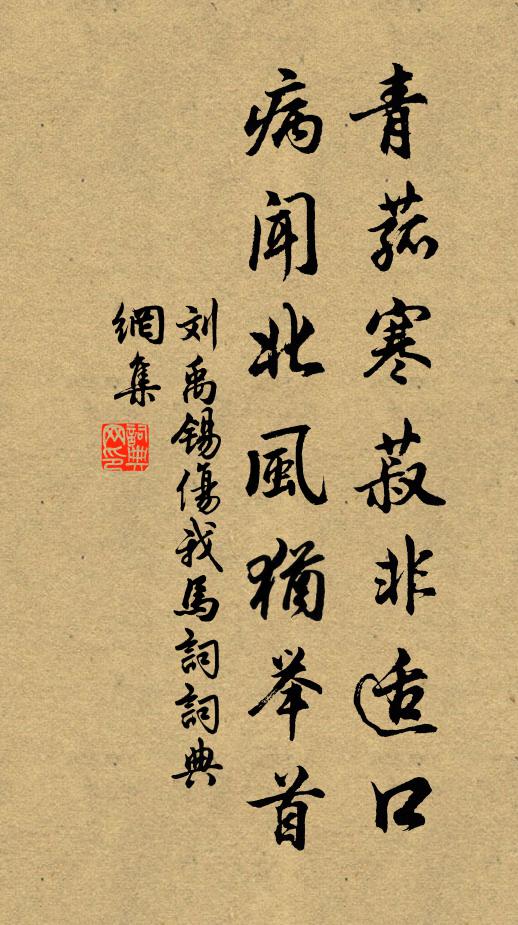 青菰寒菽非适口
病闻北風猶举首
刘禹锡傷我馬詞詞典
網集
詞典
网印